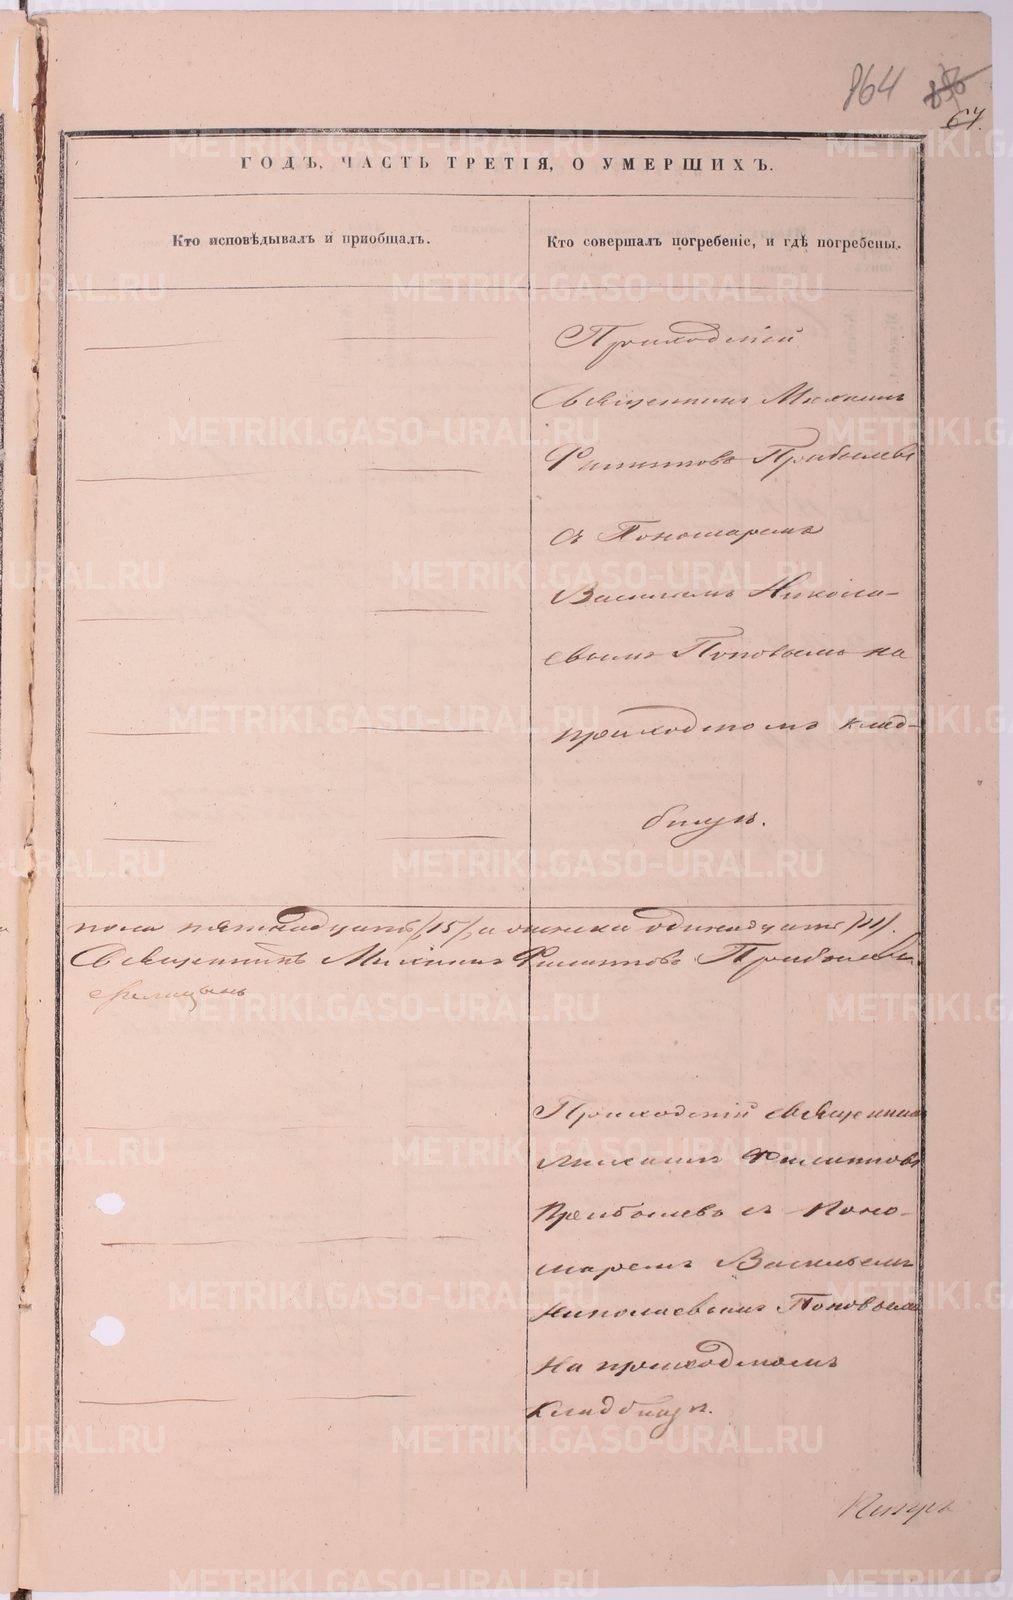 864
64.
ГОДЪ, ЧАСТЬ ТРЕТІЯ, О УМЕРШИХЪ.
Кто исповѣдывалъ и приобщалъ.
Кто совершалъ погребеніе, и гдѣ погребены.
Приходскій
Священникъ Михаилъ
Филипповъ Прибылевъ
съ Пономаремъ
Василіемъ Никола-
евымъ Поповымъ на
приходскомъ клад-
бищѣ.
пола пятнадцать /15/, а женска одинадцать /11/.
Священникъ Михаилъ Филипповъ Прибылевъ.
Приходскій священникъ
Михаилъ Филипповъ
Прибылевъ съ Поно-
маремъ Васильемъ
Николаевымъ Поповымъ
на приходскомъ
кладбищѣ.
METRIKI.GASO-URAL.RU